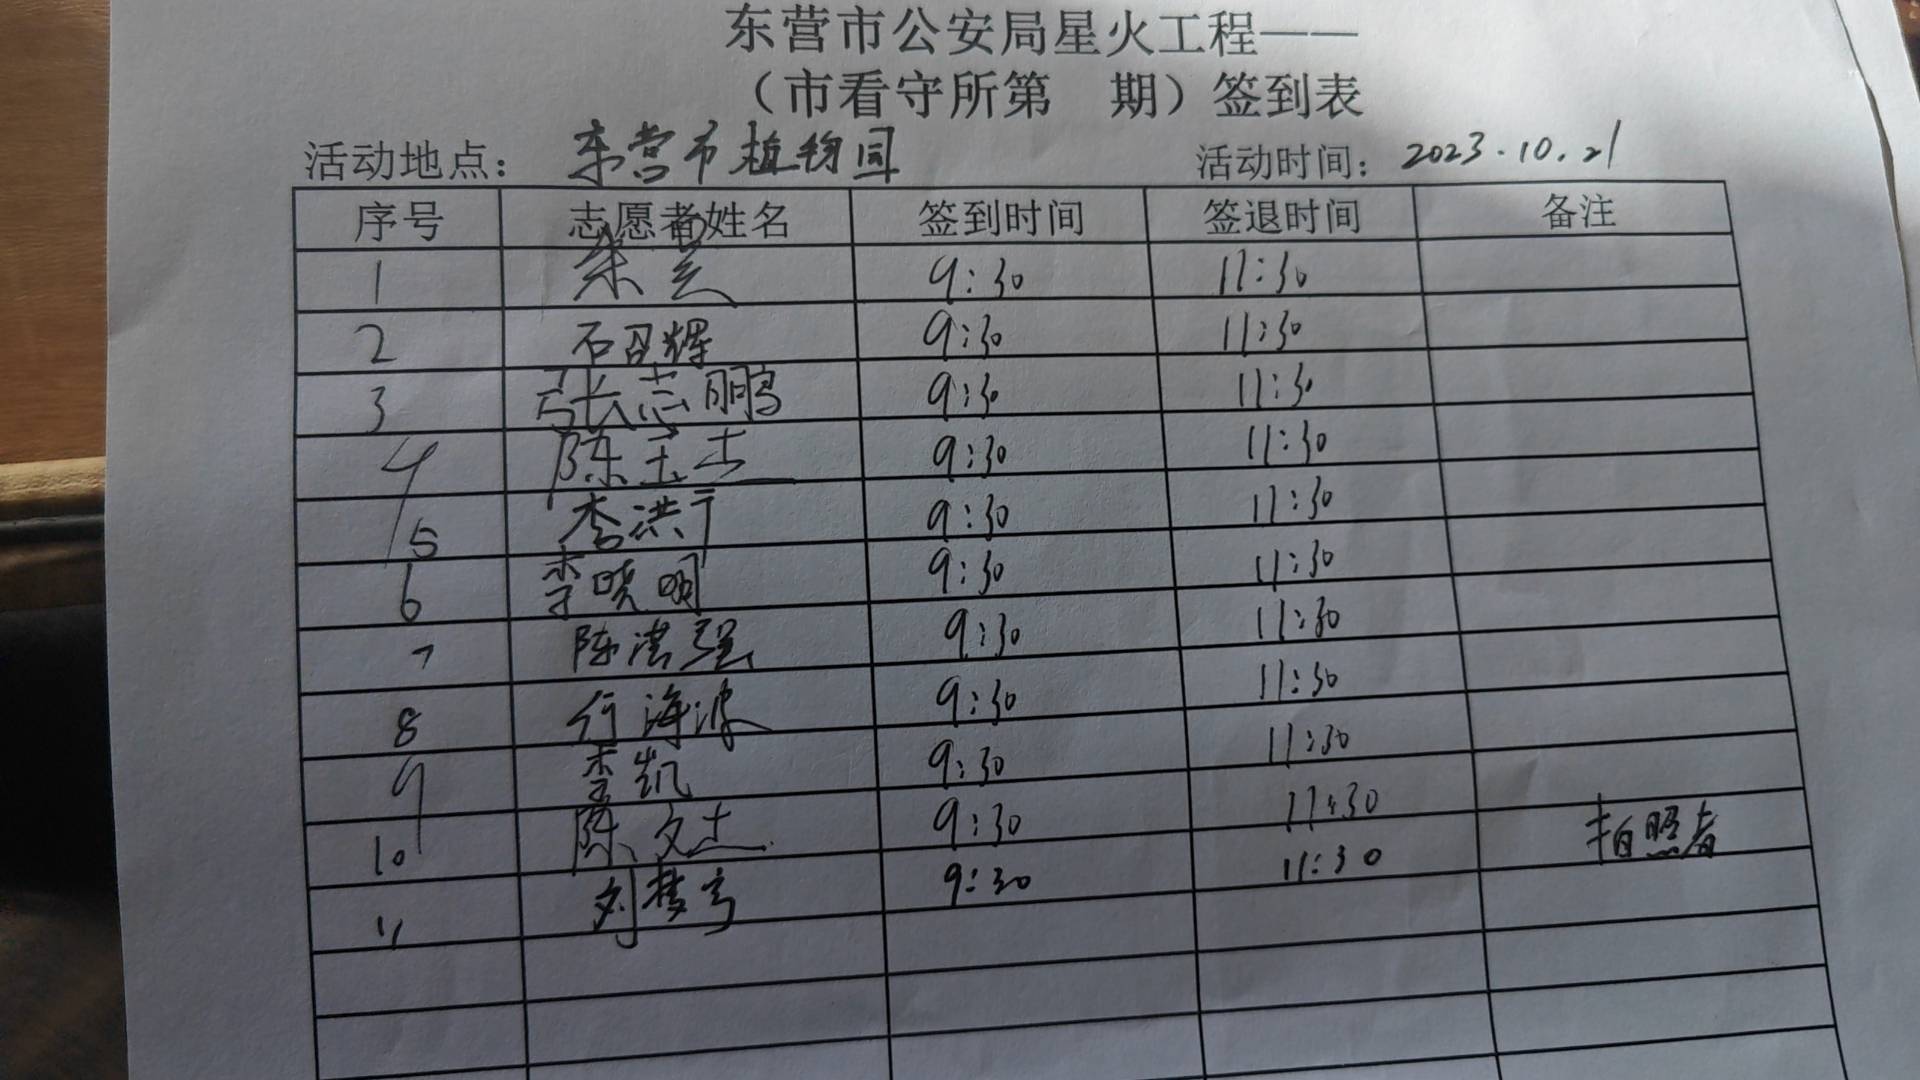 东营市公安局星火工程——
（市看守所第 期）签到表
活动地点： 东营市植物园 活动时间： 2023.10.21
序号 志愿者姓名 签到时间 签退时间 备注
1 9:30 11:30
2 石召辉 9:30 11:30
3 张志鹏 9:30 11:30
4 陈玉杰 9:30 11:30
5 李洪 9:30 11:30
6 李晓明 9:30 11:30
7 陈洪强 9:30 11:30
8 海波 9:30 11:30
9 李凯 9:30 11:30
10 陈文 9:30 11:30 拍照者
11 刘 9:30 11:30